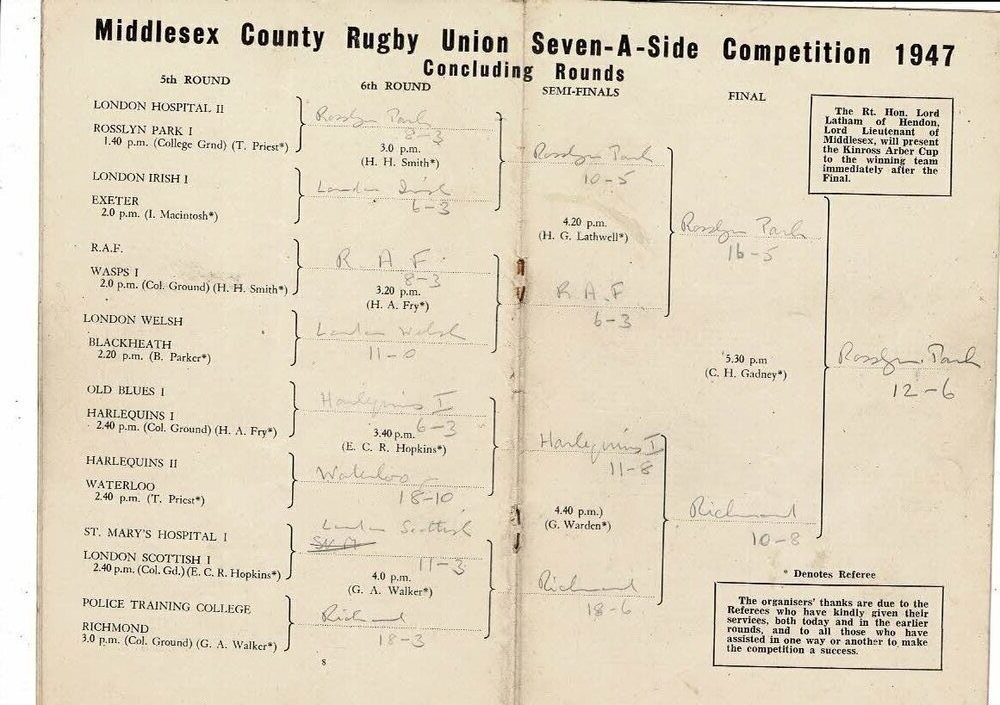 Middlesex County Rugby Union Seven-A-Side Competition 1947
Concluding Rounds
5th ROUND
LONDON HOSPITAL II
ROSSLYN PARK I
1.40 p.m. (College Grnd) (T. Priest*)
LONDON IRISH I
EXETER
2.0 p.m. (I. Macintosh*)
R.A.F.
WASPS I
2.0 p.m. (Col. Ground) (H. H. Smith*)
LONDON WELSH
BLACKHEATH
2.20 p.m. (B. Parker*)
OLD BLUES I
HARLEQUINS I
2.40 p.m. (Col. Ground) (H. A. Fry*)
HARLEQUINS II
WATERLOO
2.40 p.m. (T. Priest*)
ST. MARY'S HOSPITAL I
LONDON SCOTTISH I
2.40 p.m. (Col. Gd.) (E. C. R. Hopkins*)
POLICE TRAINING COLLEGE
RICHMOND
3.0 p.m. (Col. Ground) (G. A. Walker*)
6th ROUND
Rosslyn Park
8-3
3.0 p.m.
(H. H. Smith*)
London Irish
6-3
R A F
8-3
3.20 p.m.
(H. A. Fry*)
London Welsh
11-0
Harlequins I
6-3
3.40 p.m.
(E. C. R. Hopkins*)
Waterloo
18-10
London Scottish
11-3
4.0 p.m.
(G. A. Walker*)
Richmond
18-3
8
SEMI-FINALS
Rosslyn Park
10-5
4.20 p.m.
(H. G. Lathwell*)
R.A.F
6-3
Harlequins I
11-8
4.40 p.m.)
(G. Warden*)
Richmond
18-6
FINAL
Rosslyn Park
16-5
5.30 p.m
(C. H. Gadney*)
Richmond
10-8
Rosslyn Park
12-6
The Rt. Hon. Lord
Latham of Hendon,
Lord Lieutenant of
Middlesex, will present
the Kinross Arber Cup
to the winning team
immediately after the
Final.
* Denotes Referee
The organisers' thanks are due to the
Referees who have kindly given their
services, both today and in the earlier
rounds, and to all those who have
assisted in one way or another to make
the competition a success.